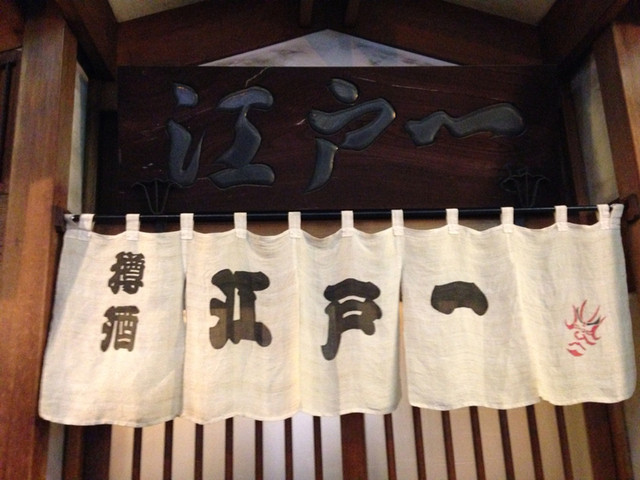 江戸一
樽酒
江戸一